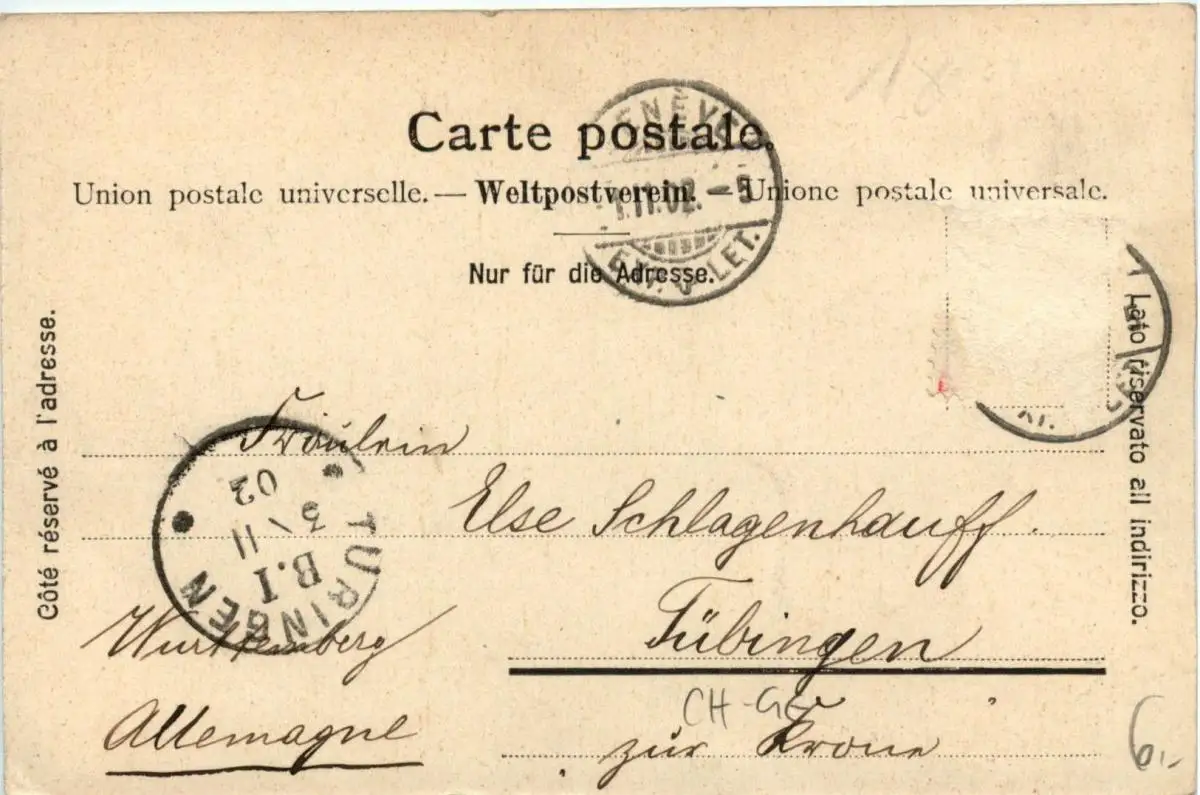 Carte postale.
Union postale universelle. — Weltpostverein. — Unione postale universale.
Nur für die Adresse.
GENÈVE
1.11.02. - 9
EXP. LET.
Côté réservé à l'adresse.
Lato riservato all indirizzo.
Fräulein
Else Schlagenhauff.
Tübingen
zur Krone
Württemberg
Allemagne
TÜBINGEN
B.I
3/11
02
CH-GE
6.-